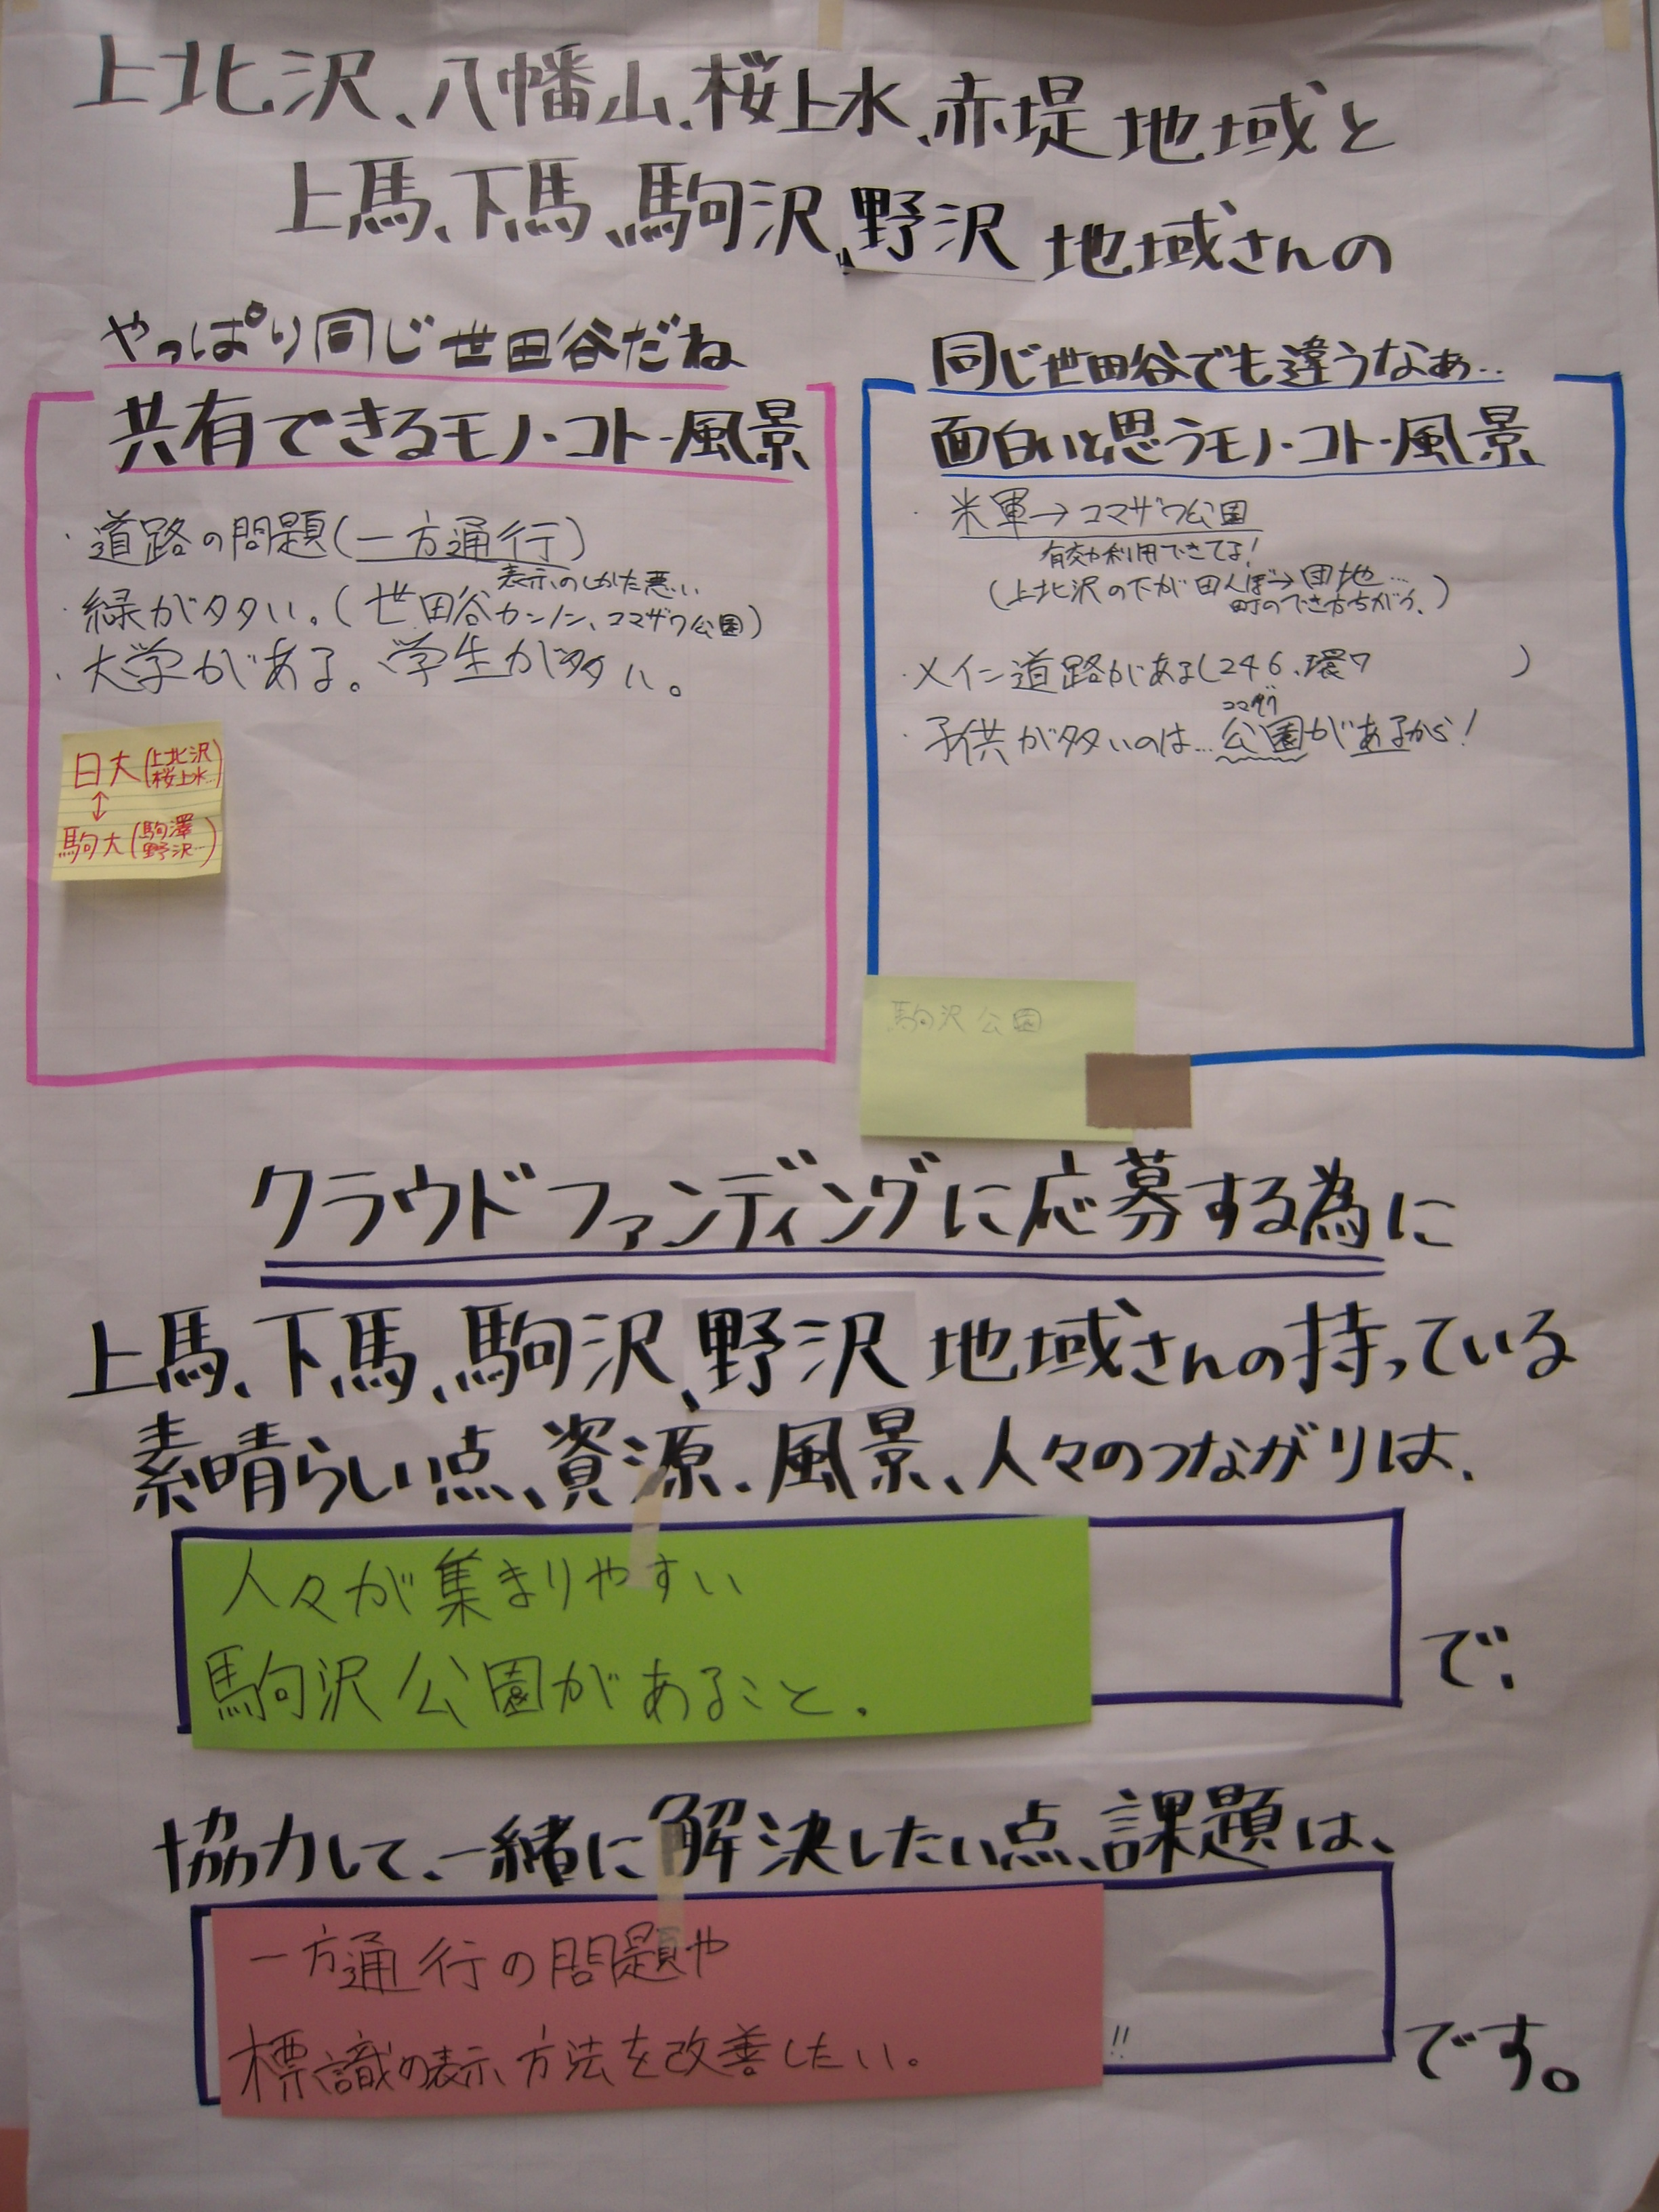 上北沢、八幡山、桜上水、赤堤 地域と
上馬、下馬、駒沢、野沢 地域さんの
やっぱり同じ世田谷だね
共有できるモノ・コト・風景
・道路の問題(一方通行)
表示のしかた悪い
・緑が多い。(世田谷カンノン、コマザワ公園)
・大学がある。学生が多い。
日大(上北沢
桜上水…)
↕
駒大(駒澤
野沢…)
同じ世田谷でも違うなぁ..
面白いと思うモノ・コト・風景
・米軍→コマザワ公園
有効利用できてる!
(上北沢の下が田んぼ→団地…
町のでき方ちがう。)
・メイン道路がある(246、環7 )
コマザワ
・子供が多いのは…公園があるから!
駒沢公園
クラウドファンディングに応募する為に
上馬、下馬、駒沢、野沢 地域さんの持っている
素晴らしい点、資源、風景、人々のつながりは、
人々が集まりやすい
駒沢公園があること。
で、
協力して、一緒に解決したい点、課題は、
一方通行の問題や
標識の表示方法を改善したい。
!!
です。